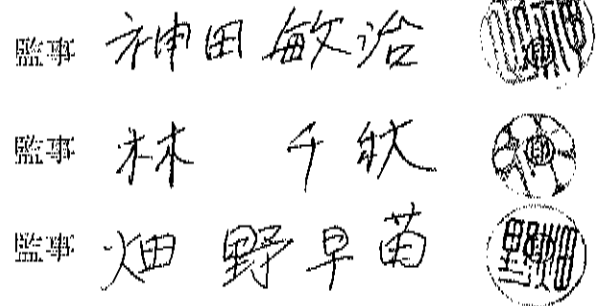 監事 神田敏治
監事 林 千秋
監事 畑野早苗